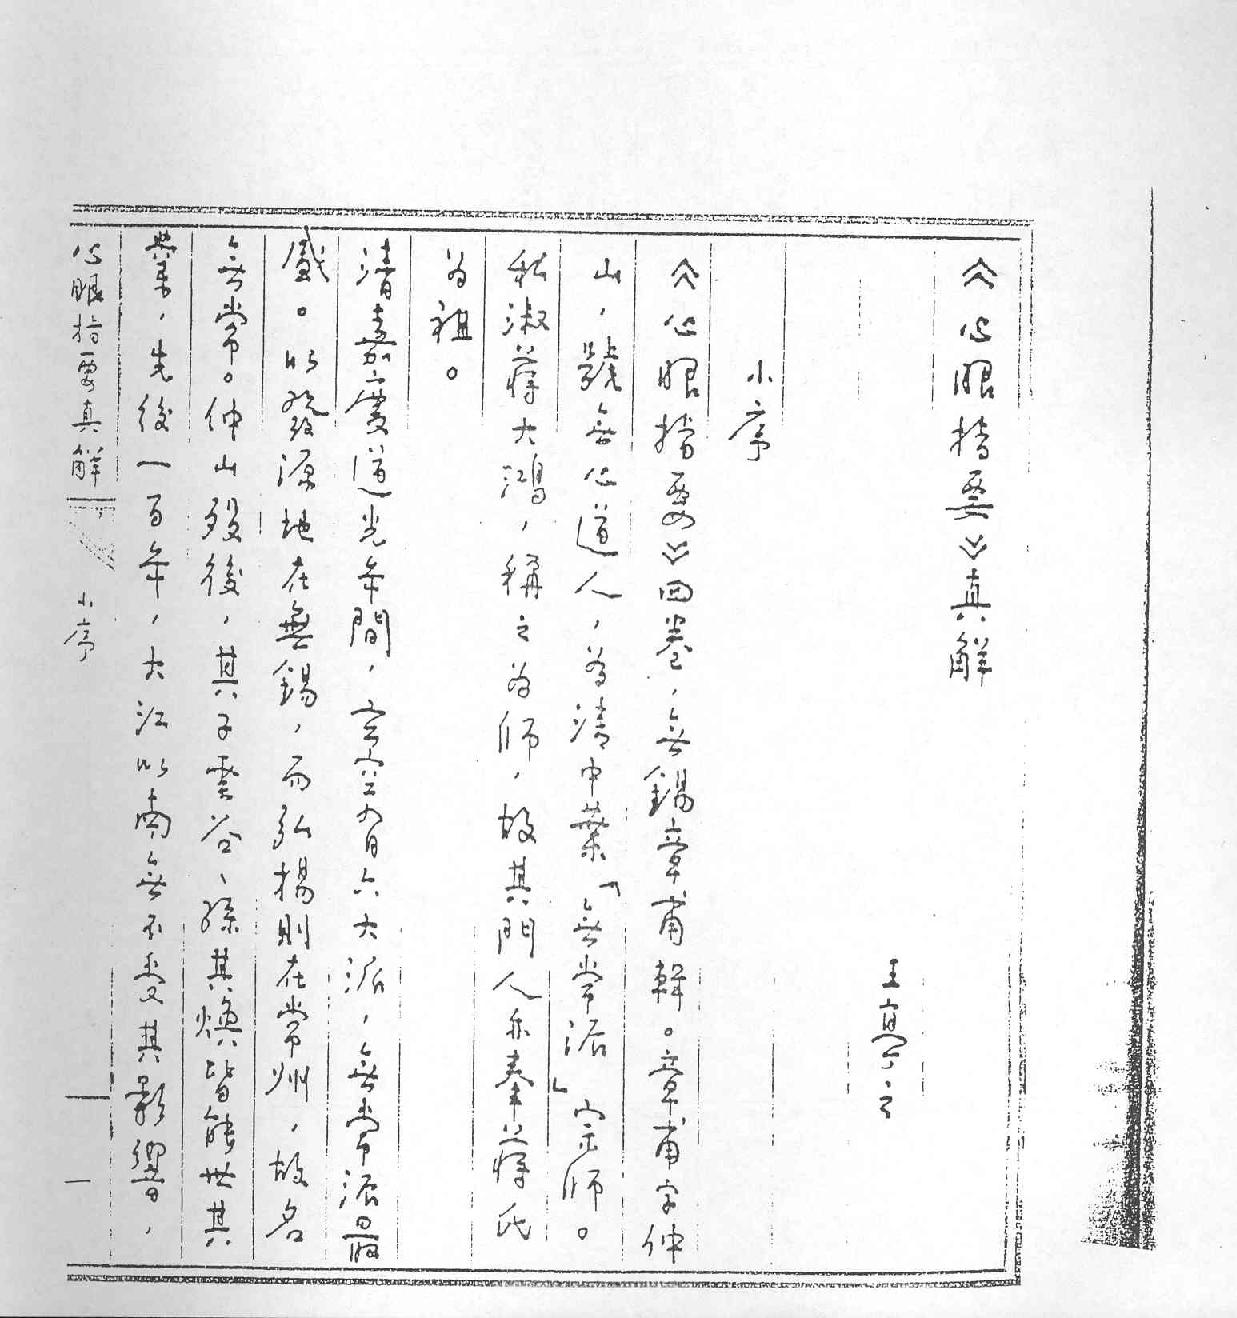 《心眼指要》真解
王亭之
小序
《心眼指要》四卷，無錫章甫輯。章甫字仲
山，號無心道人，為清中葉「無常派」宗師。
私淑蔣大鴻，稱之為師，故其門人亦奉蔣氏
為祖。
清嘉慶道光年間，玄空有六大派，無常派最
盛。以發源地在無錫，而弘揚則在常州，故名
無常。仲山歿後，其子雲谷、孫其煥皆能世其
業，先後一百年，大江以南無不受其影響，
心眼指要真解 小序 一